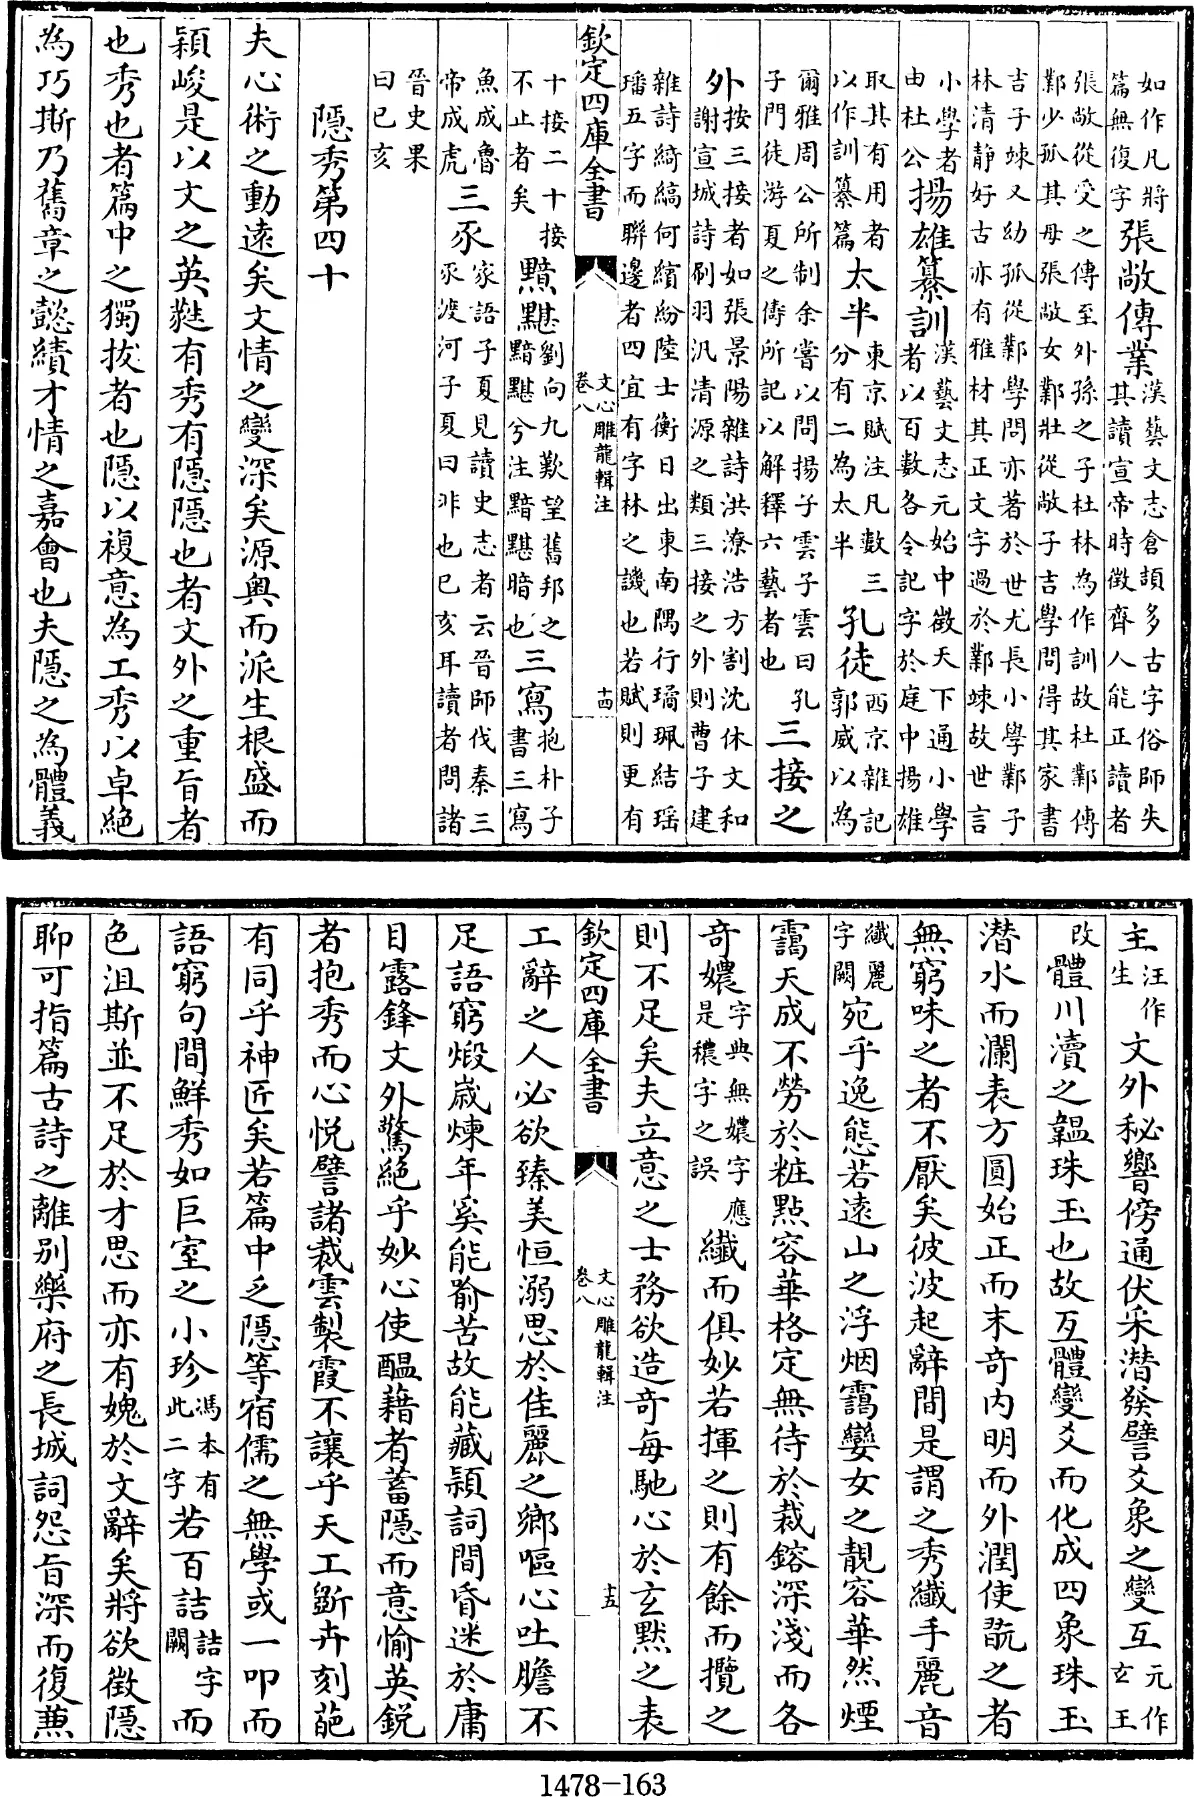 如作凡將篇無復字張敞傳業漢藝文志倉頡多古字俗師失其讀宣帝時徵齊人能正讀者
張敞從受之傳至外孫之子杜林為作訓故杜鄴傳鄴少孤其母張敞女鄴壯從敞子吉學問得其家書
吉子竦又幼孤從鄴學問亦著於世尤長小學鄴子林清静好古亦有雅材其正文字過於鄴竦故世言
小學者由杜公揚雄纂訓漢藝文志元始中徵天下通小學者以百數各令記字於庭中揚雄
取其有用者以作訓纂篇太半東京賦注凡數三分有二為太半孔徒西京雜記郭威以為
爾雅周公所制余嘗以問揚子雲子雲曰孔子門徒游夏之儔所記以解釋六藝者也三接之
外按三接者如張景陽雜詩洪潦浩方割沈休文和謝宣城詩刷羽汎清源之類三接之外則曹子建
雜詩綺縞何繽紛陸士衡日出東南隅行璚珮結瑶璠五字而聯邊者四宜有字林之譏也若賦則更有
欽定四庫全書 文心雕龍輯注 卷八 十四
十接二十接不止者矣黯黮劉向九歎望舊邦之黯黮兮注黯黮暗也三寫抱朴子書三寫
魚成魯帝成虎三豕家語子夏見讀史志者云晉師伐秦三豕渡河子夏曰非也已亥耳讀者問諸
晉史果曰已亥
隱秀第四十
夫心術之動遠矣文情之變深矣源奥而派生根盛而
穎峻是以文之英蕤有秀有隱隱也者文外之重旨者
也秀也者篇中之獨拔者也隱以複意為工秀以卓絶
為巧斯乃舊章之懿績才情之嘉會也夫隱之為體義
主汪作生文外秘響傍通伏采潜發譬爻象之變互元作玄王
改體川瀆之韞珠玉也故互體變爻而化成四象珠玉
潜水而瀾表方圓始正而末奇内明而外潤使翫之者
無窮味之者不厭矣彼波起辭間是謂之秀纎手麗音
纎麗字闕宛乎逸態若遠山之浮烟靄孌女之靚容華然煙
靄天成不勞於粧點容華格定無待於裁鎔深淺而各
奇㜮字典無㜮字應是穠字之誤纖而俱妙若揮之則有餘而攬之
則不足矣夫立意之士務欲造奇每馳心於玄默之表
欽定四庫全書 文心雕龍輯注 卷八 十五
工辭之人必欲臻美恒溺思於佳麗之鄉嘔心吐膽不
足語窮煅嵗煉年奚能喻苦故能藏穎詞間昏迷於庸
目露鋒文外驚絶乎妙心使醖藉者蓄隱而意愉英鋭
者抱秀而心悦譬諸裁雲製霞不讓乎天工斵卉刻葩
有同乎神匠矣若篇中乏隱等宿儒之無學或一叩而
語窮句間鮮秀如巨室之小珍馮本有此二字若百詰詰字闕而
色沮斯並不足於才思而亦有媿於文辭矣將欲徴隱
聊可指篇古詩之離别樂府之長城詞怨旨深而復兼
1478-163